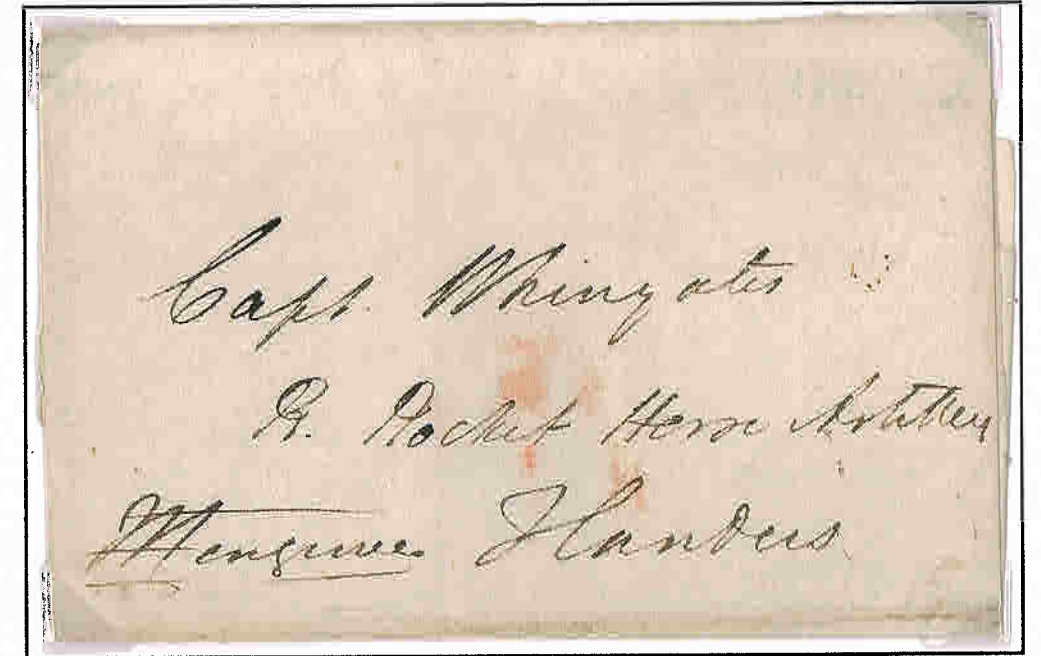 Capt. Whinyates
R. Rocket Horse Artillery
Flanders